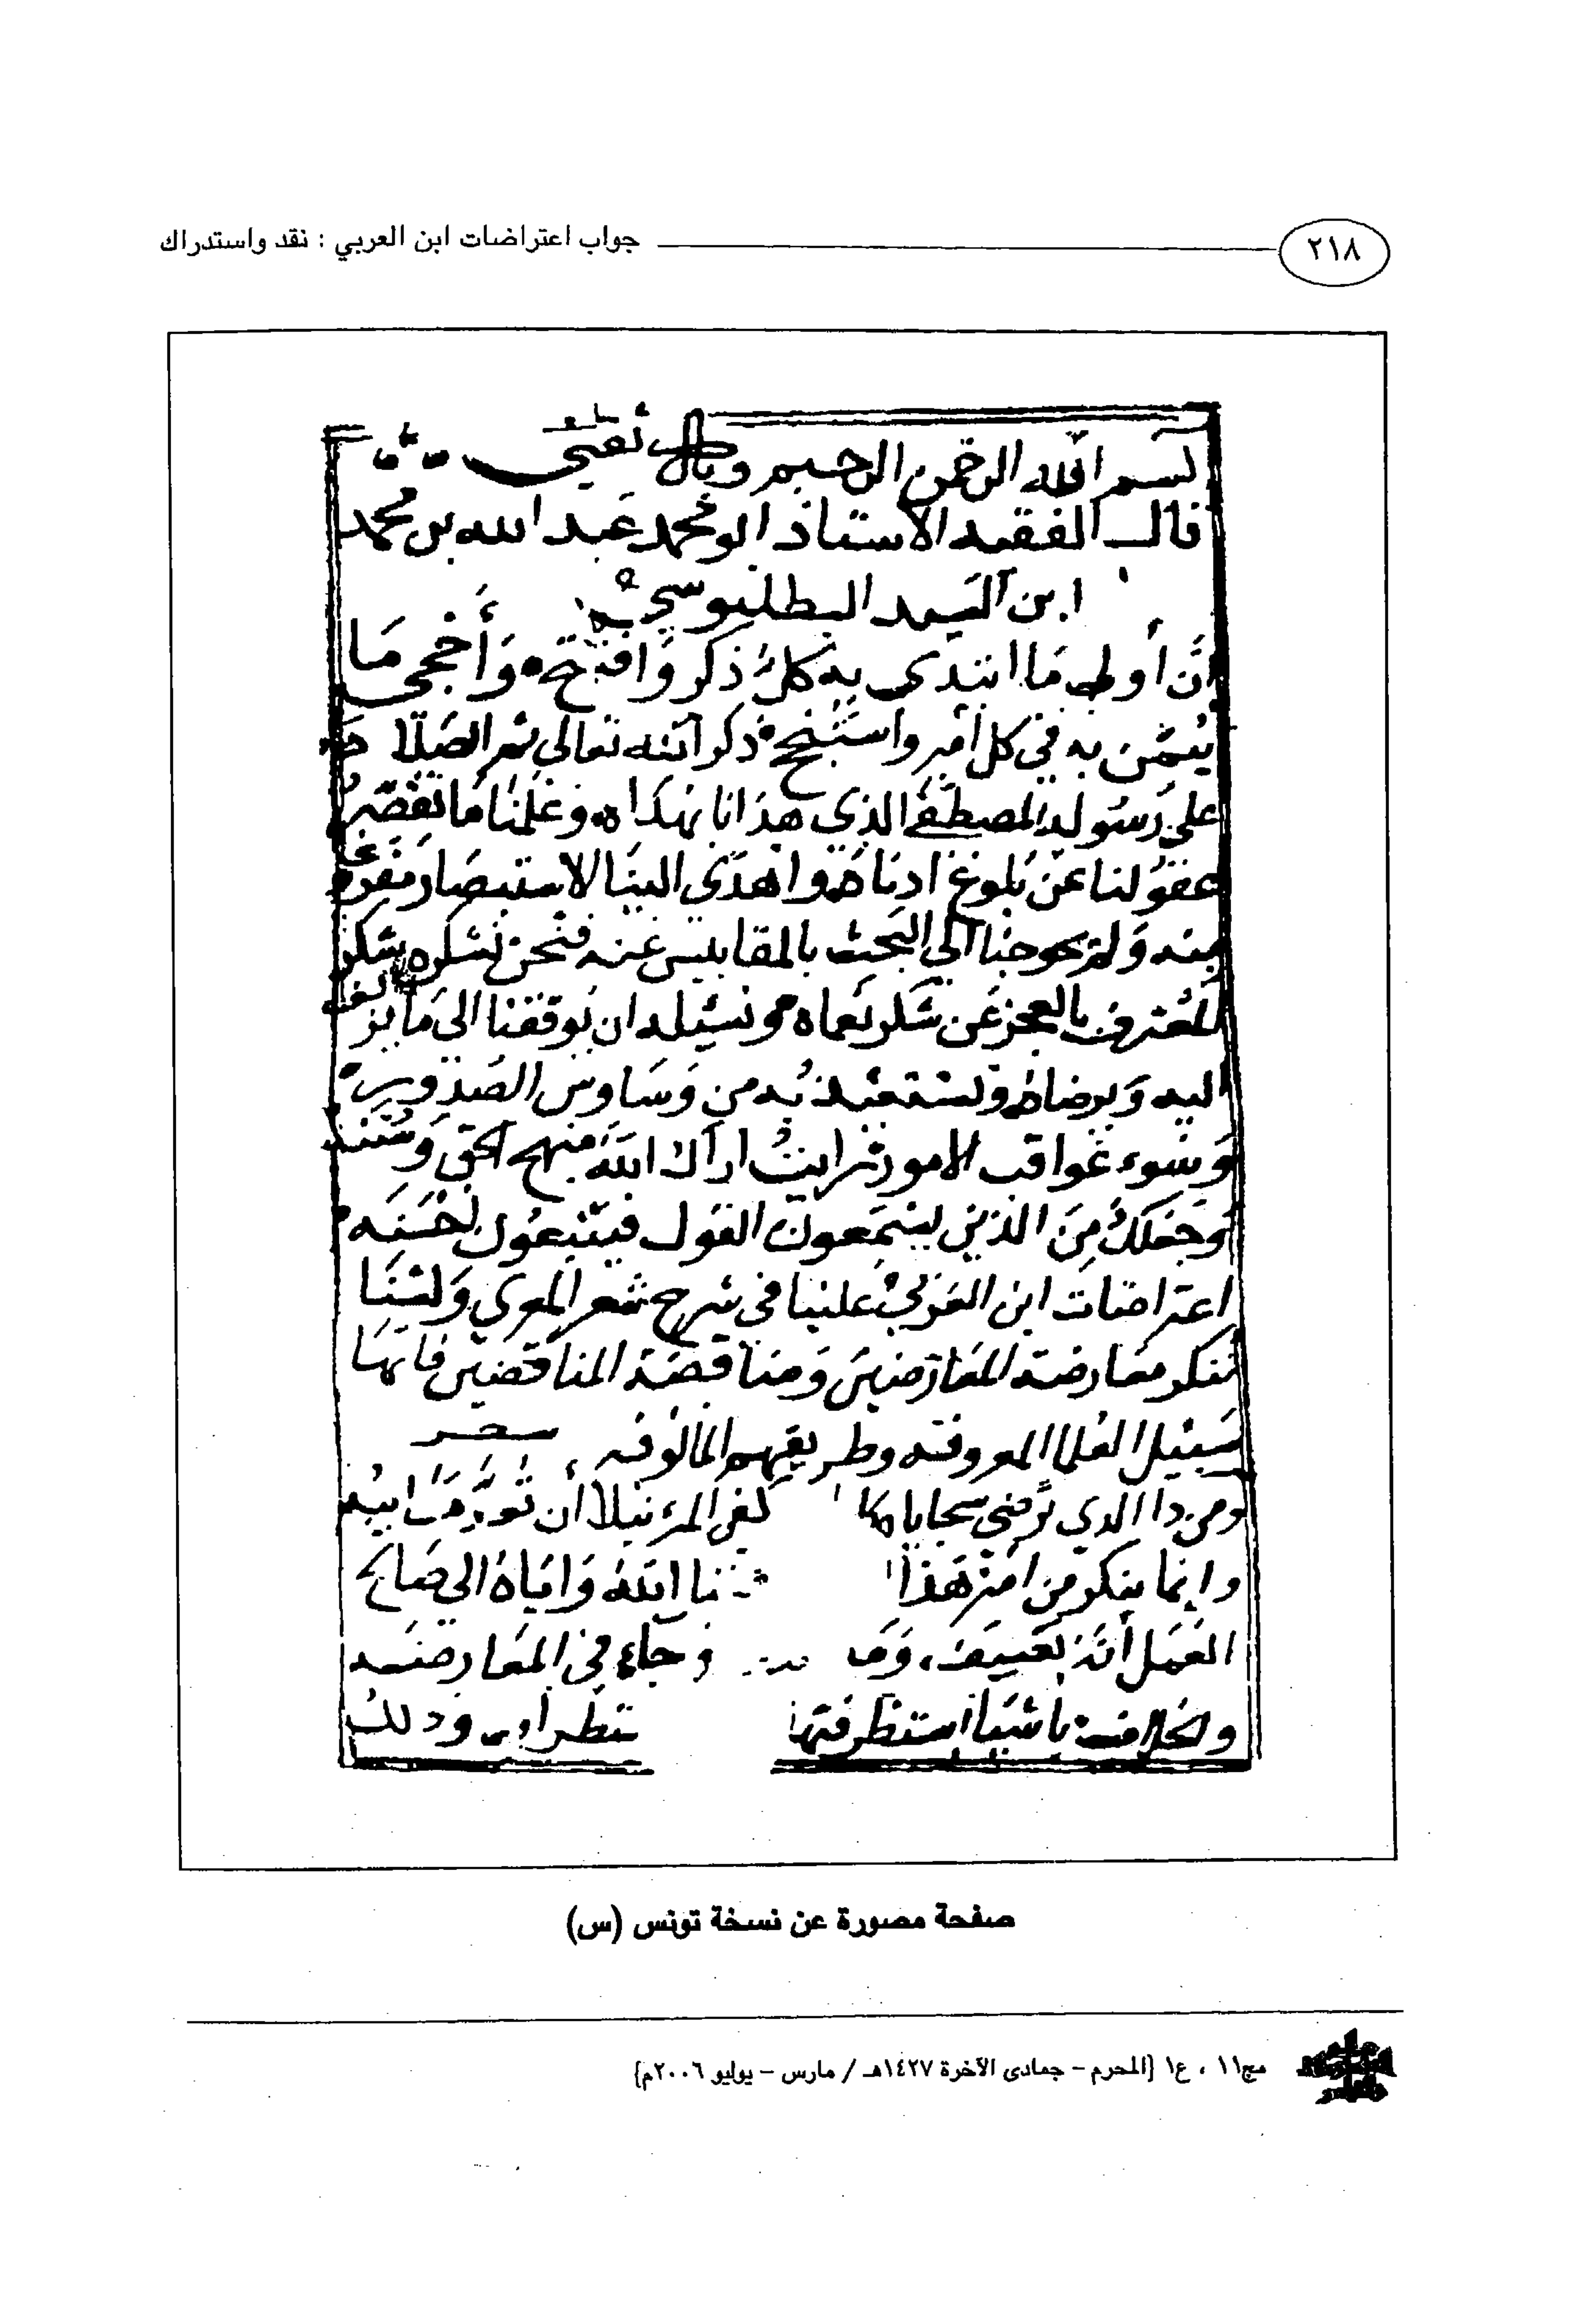 ٢١٨ جواب اعتراضات ابن العربي : نقد واستدراك
بسم الله الرحمن الرحيم وبالله ثقتي
قال الفقيه الاستاذ ابو محمد عبد الله بن محمد
ابن السيد البطليوسي
إن أولى ما ابتدى به كل ذكر وافتتح وأحجى ما
تيمن به في كل أمر واستنجح ذكر الله تعالى ثم الصلاة
على رسوله المصطفى الذي هدانا بهداه وعلمنا ما تقصر
عقولنا عن بلوغ ادناه واهدى الينا الاستبصار
منه ولم يحوجنا الى البحث بالمقاييس عنه فنحن نشكره شكر
المعترف بالعجز عن شكر نعماه ونسئله ان يوفقنا الى ما يزلف
اليه ويرضاه ونستعيذ به من وساوس الصدور
وسوء عواقب الامور رايت اراك الله منهج الحق وسننه
وجعلك من الذين يستمعون القول فيتبعون احسنه
اعتراضات ابن العربي علينا في شرح شعر المعري ولسنا
ننكر معارضة المعارضين ومناقضة المناقضين فانها
سبيل العلما المعروفة وطريقهم المالوفة
ومن ذا الذي ترضى سجاياه كلها كفى المرء نبلا أن تعد معايبه
وانما ينكر من امر هذا الله واياه الى صالح
العمل أنه تعسف، في المعارضة
والخلاف باشيا استظرفتها وذلك
صفحة مصورة عن نسخة تونس (س)
مج١١ ، ع١ [المحرم – جمادى الآخرة ١٤٢٧هـ / مارس – يوليو ٢٠٠٦م]